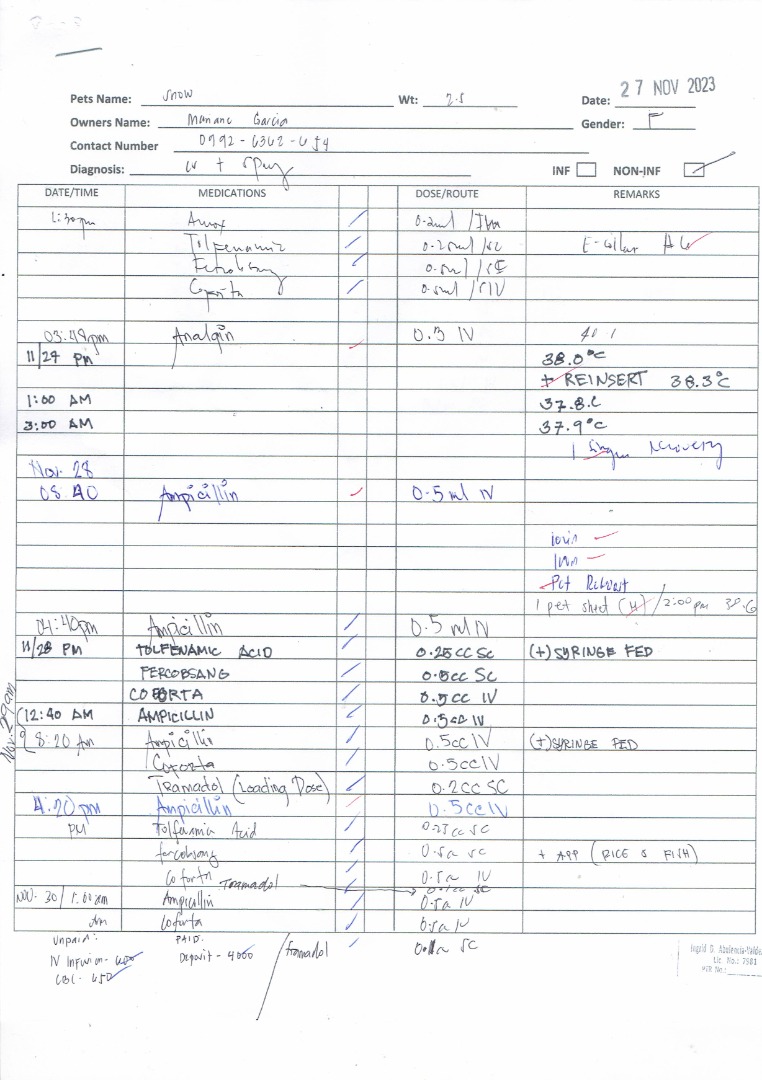 27 NOV 2023
Pets Name: Snow Wt: 2.5 Date:
Owners Name: Garcia Gender: F
Contact Number 0992-6362-654
Diagnosis: + spay INF NON-INF
DATE/TIME MEDICATIONS DOSE/ROUTE REMARKS
Amox 0.2ml /Im
Tolfenamic 0.25ml /sc E-collar
0.5ml /sc
Coforta 0.5ml /SIV
03:49pm Analgin 0.3 IV 40.1
11/27 PM 38.0°C
+ REINSERT 38.3°C
1:00 AM 37.8.C
3:00 AM 37.9°C
recovery
Nov. 28
08:40 Ampicillin 0.5 ml IV
Pet Release
1 pet sheet (M) / 2:00pm 38.6
04:40pm Ampicillin 0.5 ml IV
11/28 PM TOLFENAMIC ACID 0.25CC SC (+) SYRINGE FED
FERCOBSANG 0.5CC SC
COFORTA 0.5CC IV
Nov. 29 am
12:40 AM AMPICILLIN 0.5CC IV
8:20 Am Ampicillin 0.5cc IV (+) SYRINGE FED
Coforta 0.5cc IV
Tramadol (Loading Dose) 0.2cc SC
4:20 pm Ampicillin 0.5cc IV
PM Tolfenamic Acid 0.25cc SC
fercobsang 0.5cc SC + APP (RICE & FISH)
Coforta 0.5cc IV
Tramadol 0.1cc SC
NOV. 30/ 1:00am Ampicillin 0.5cc IV
Am Coforta 0.5cc IV
Unpaid: PAID: Tramadol SC
IV Infusion - 600 Deposit - 4000
CBC - 650
Lic No.: 7981
PTR No.: